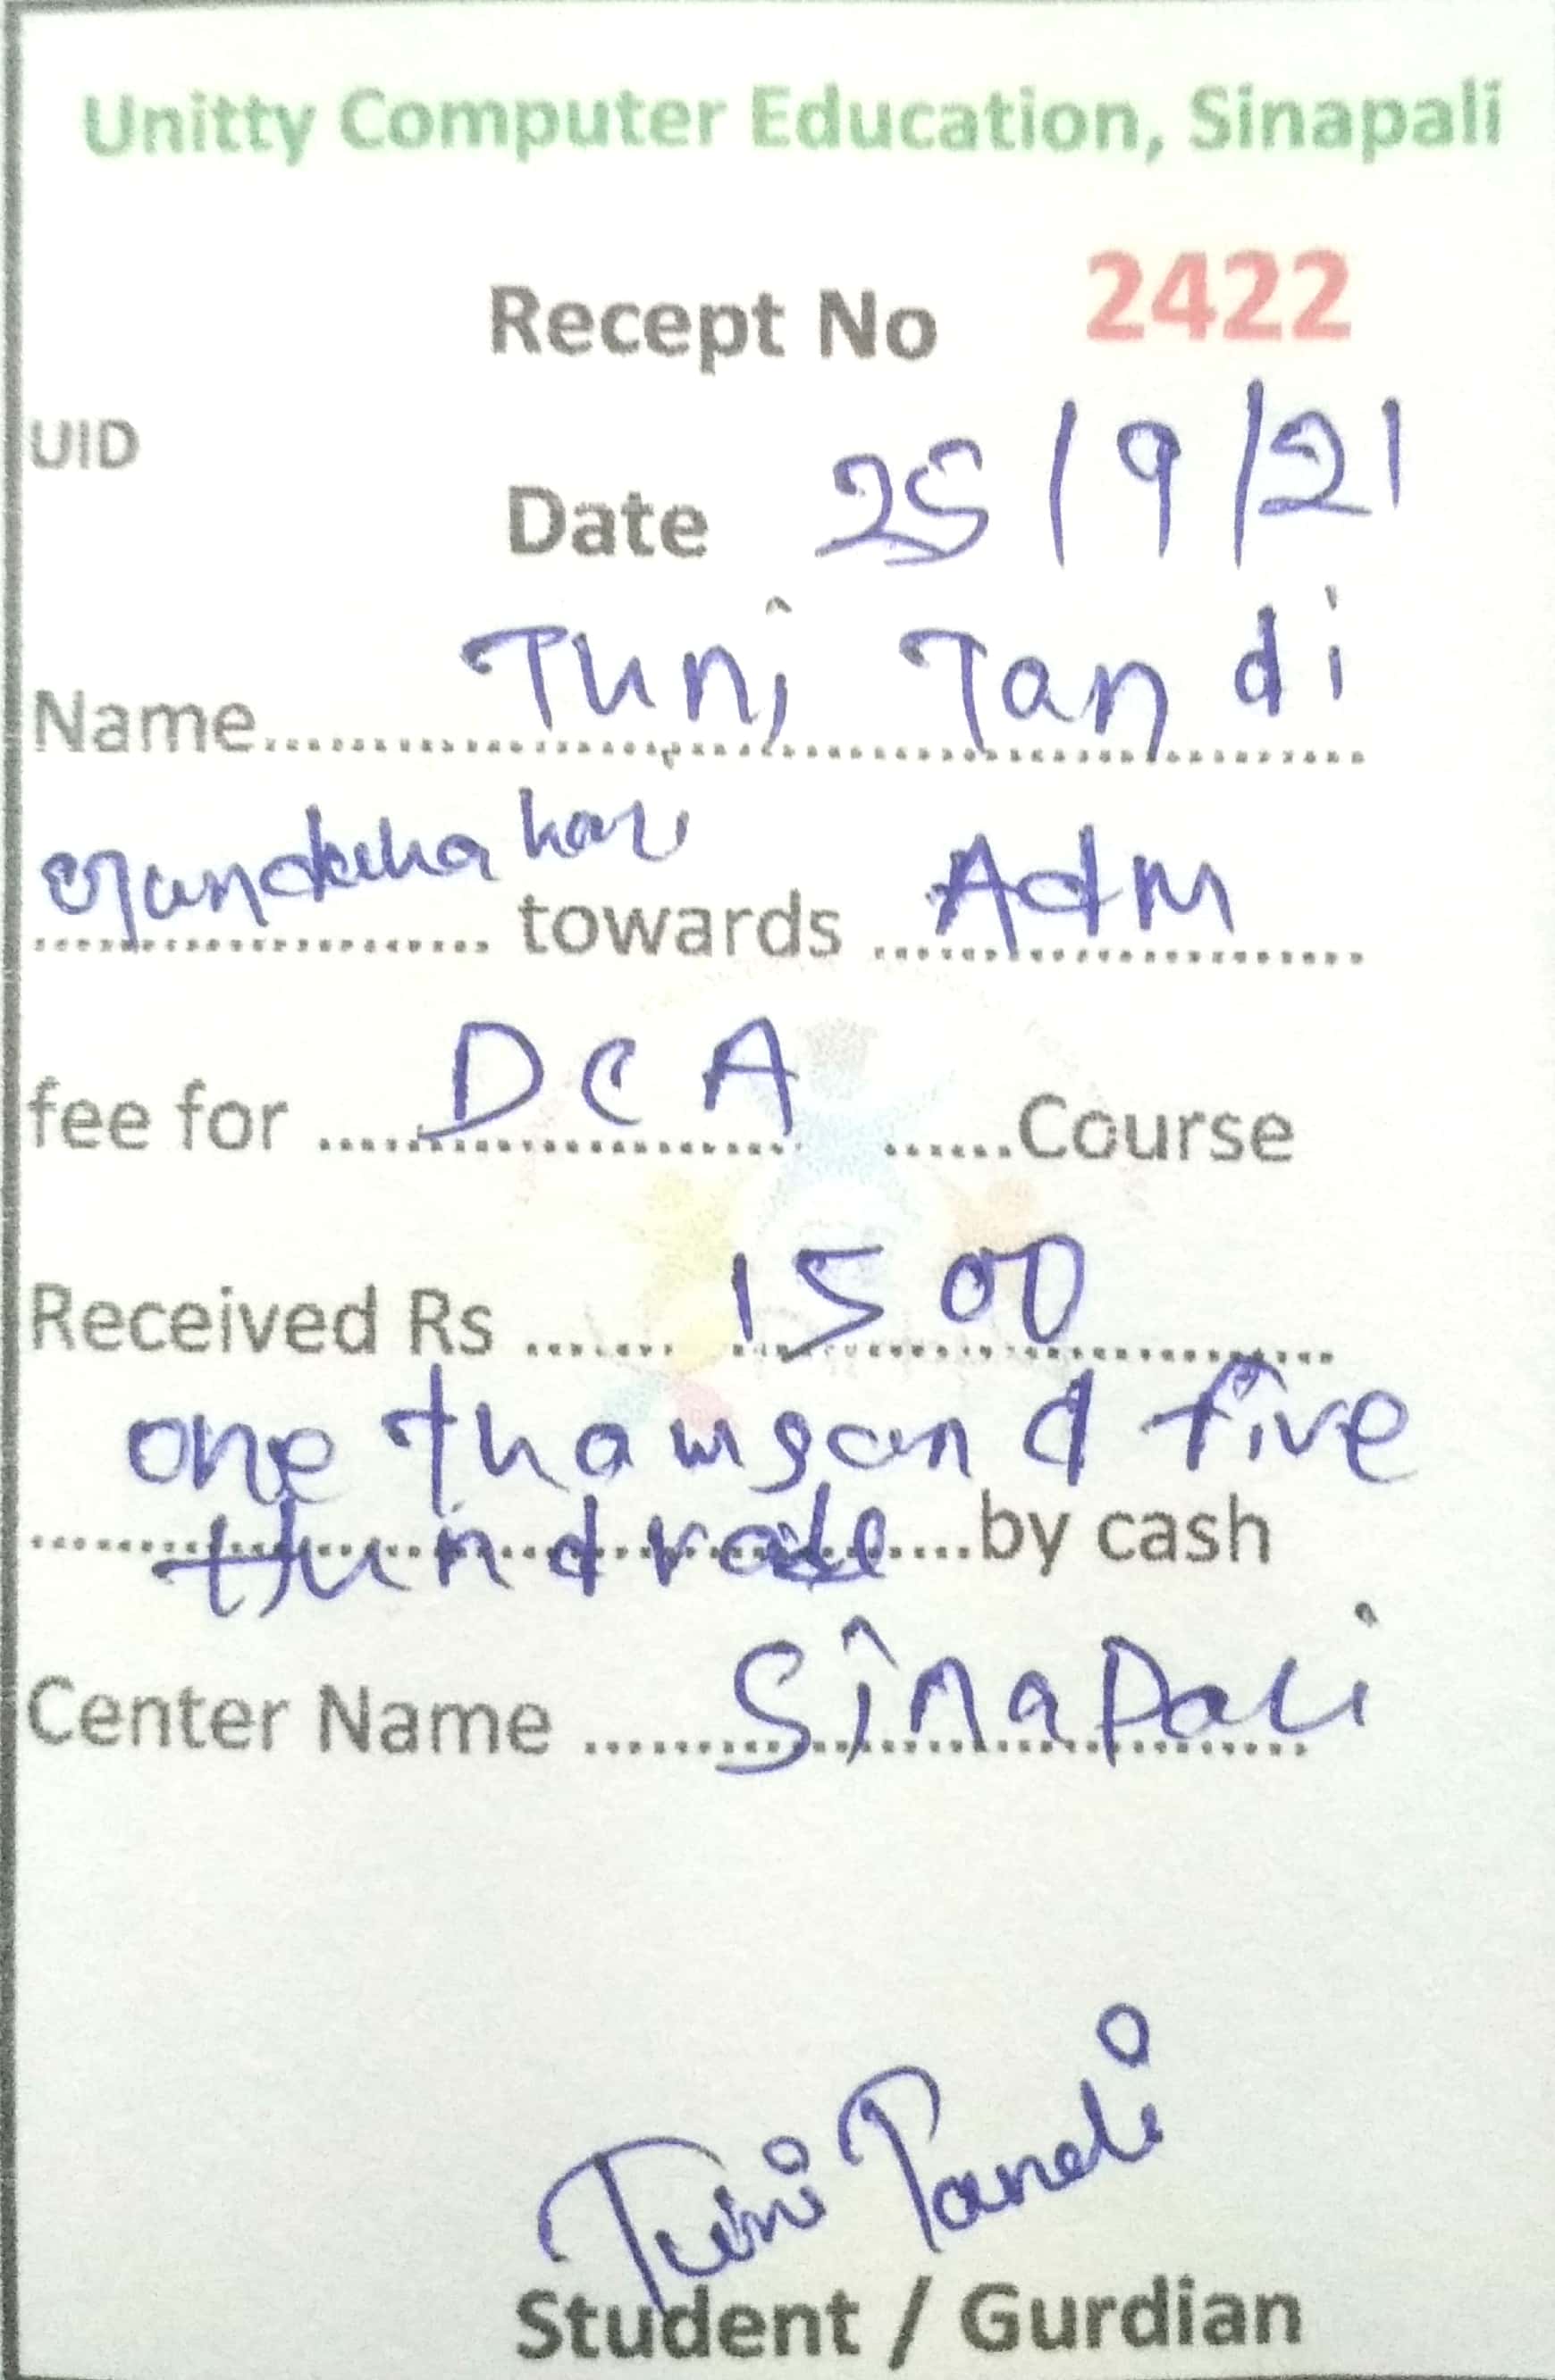 Unitty Computer Education, Sinapali
Recept No 2422
UID
Date 25/9/21
Name.......... Tuni Tandi
.......... towards Adm
fee for .......... DCA ......Course
Received Rs ...... 1500
one thousand five
..........by cash
Center Name .......... Sinapali
Tuni Tandi
Student / Gurdian